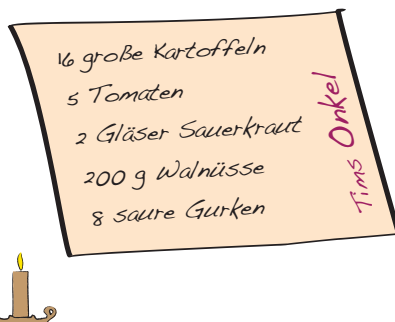 16 große Kartoffeln
5 Tomaten
2 Gläser Sauerkraut
200 g Walnüsse
8 saure Gurken
Tims Onkel